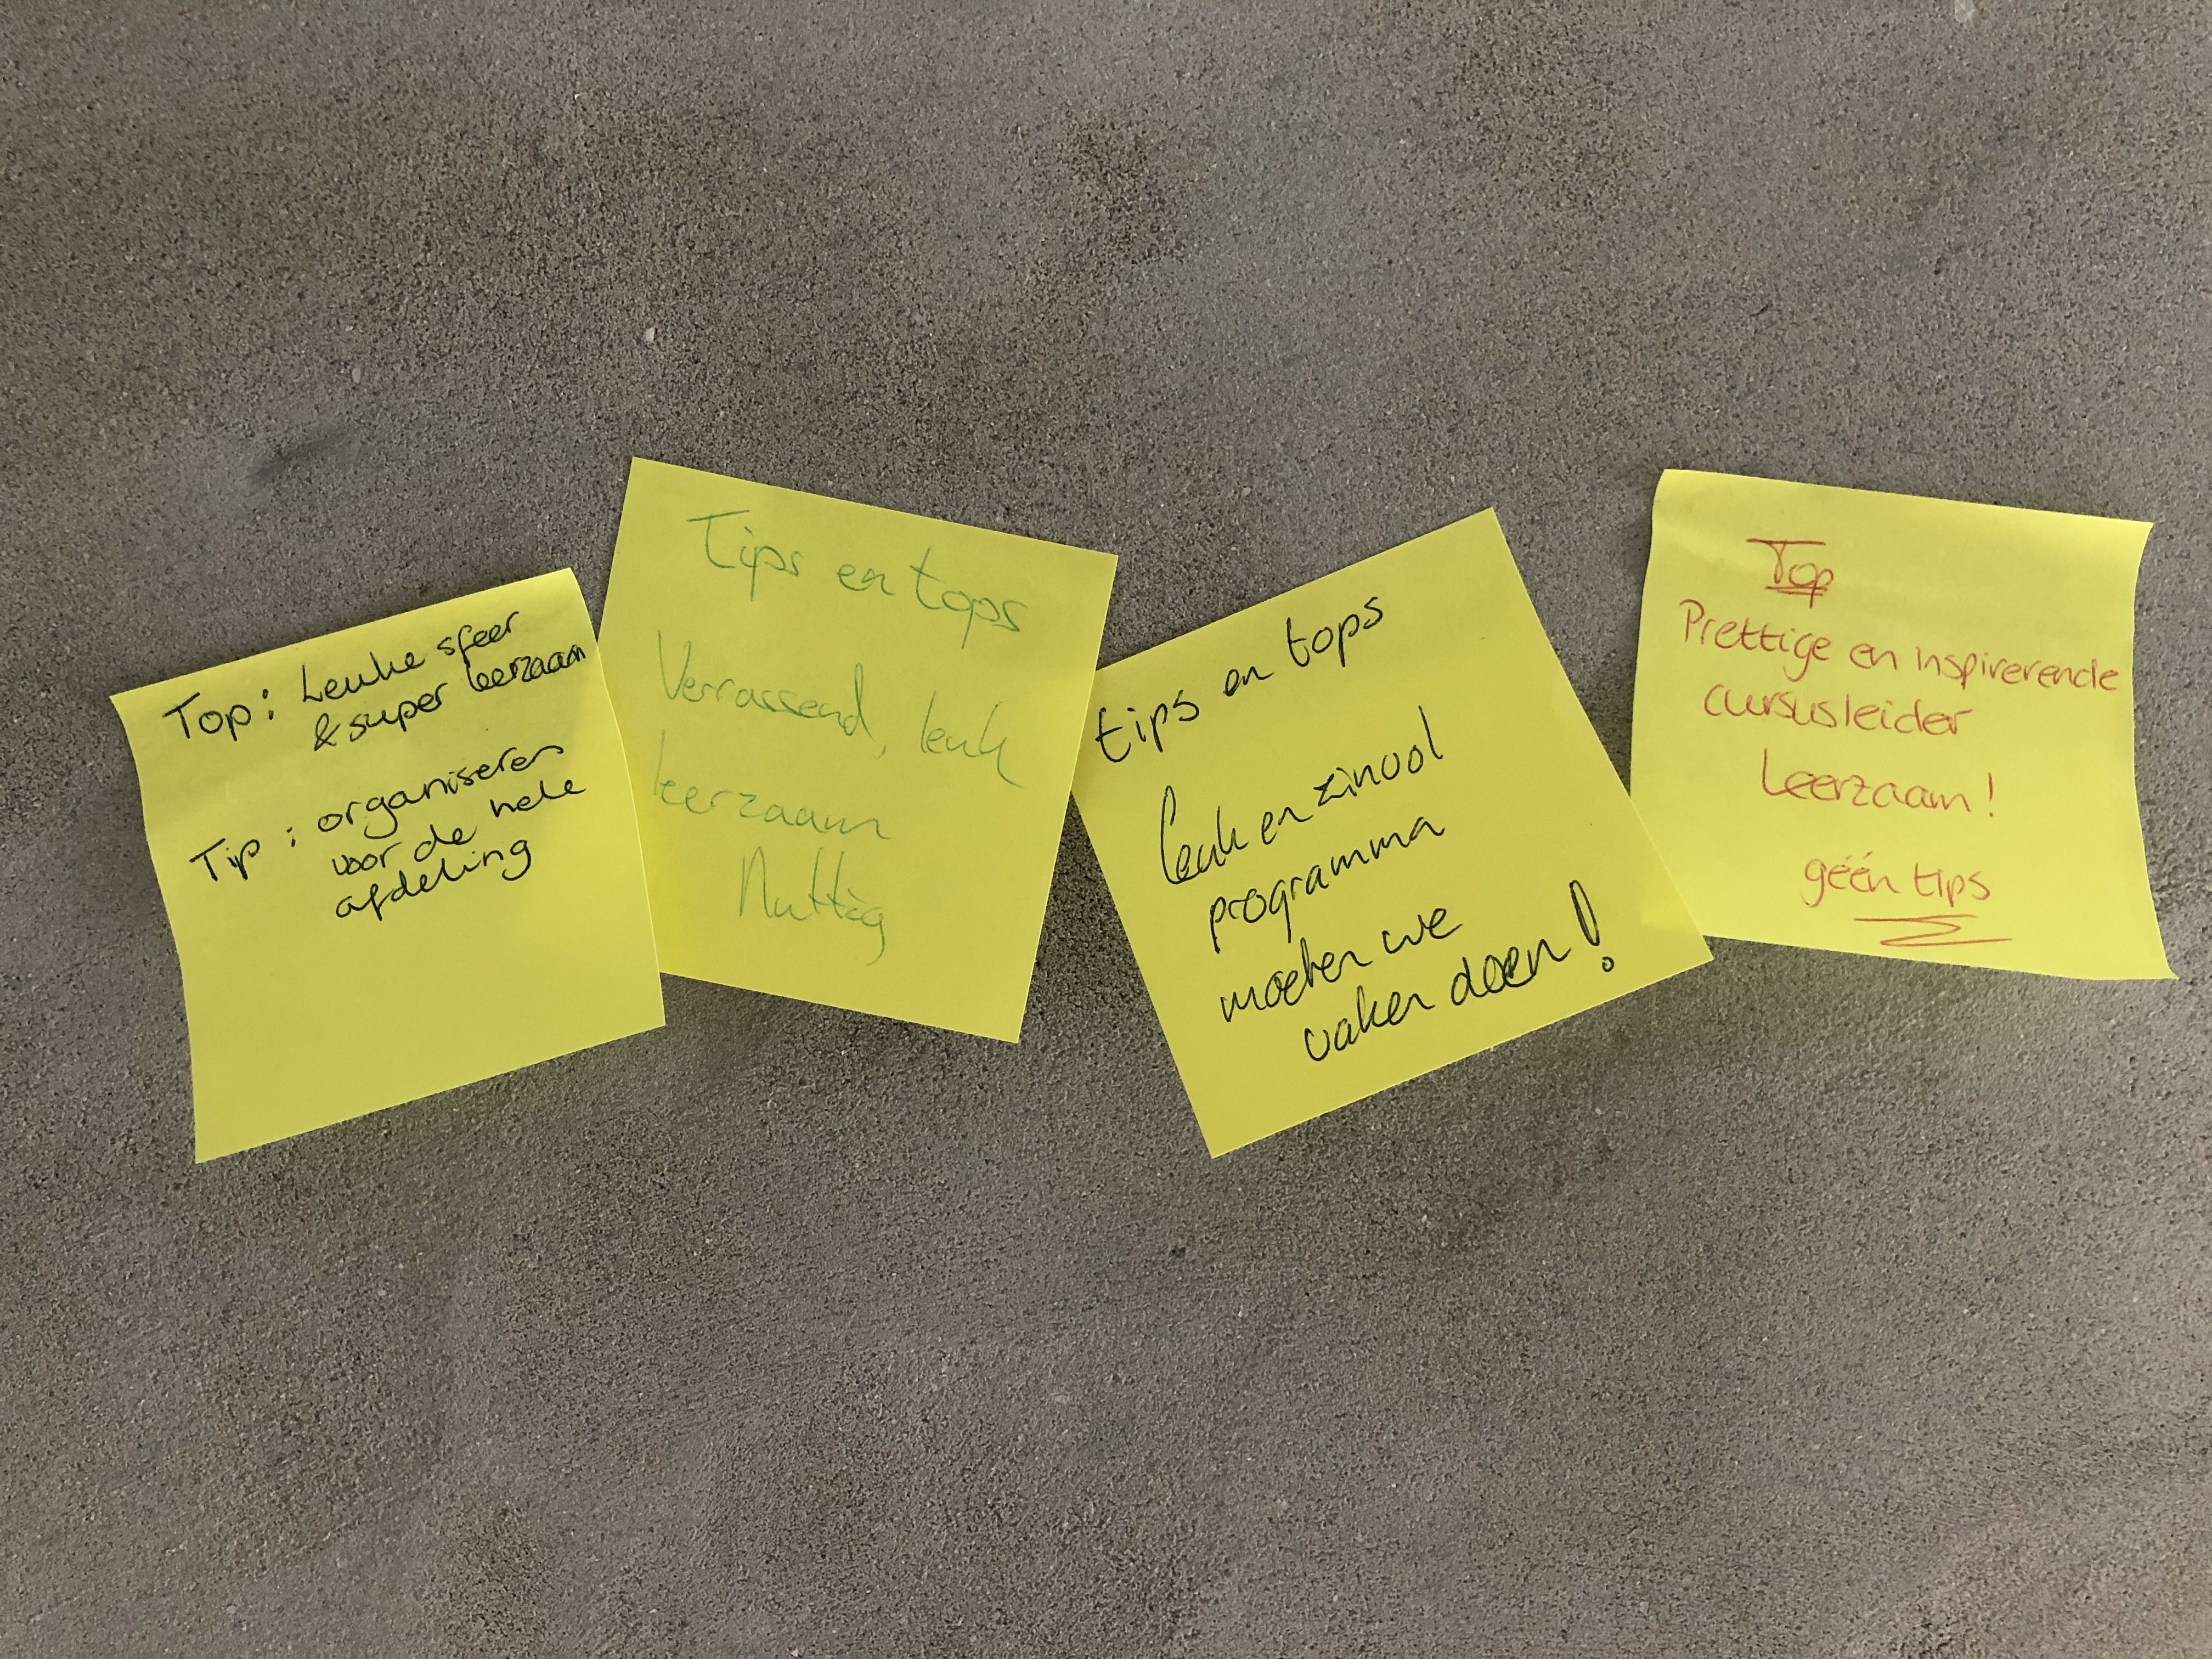 Top: Leuke sfeer
& super leerzaam
Tip: organiseren
voor de hele
afdeling
Tips en tops
Verrassend, leuk
leerzaam
Nuttig
tips en tops
leuk en zinvol
programma
moeten we
vaker doen!
Top
Prettige en inspirerende
cursusleider
Leerzaam!
géén tips